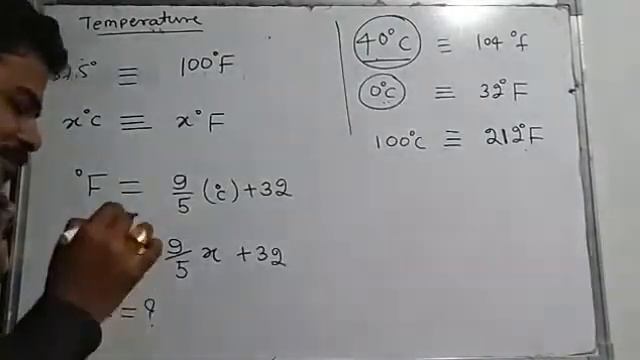 Temperature
.5° ≡ 100°F
x°C ≡ x°F
°F = 9/5 (°C) + 32
9/5 x + 32
= ?
40°C ≡ 104°f
0°C ≡ 32°F
100°C ≡ 212°F